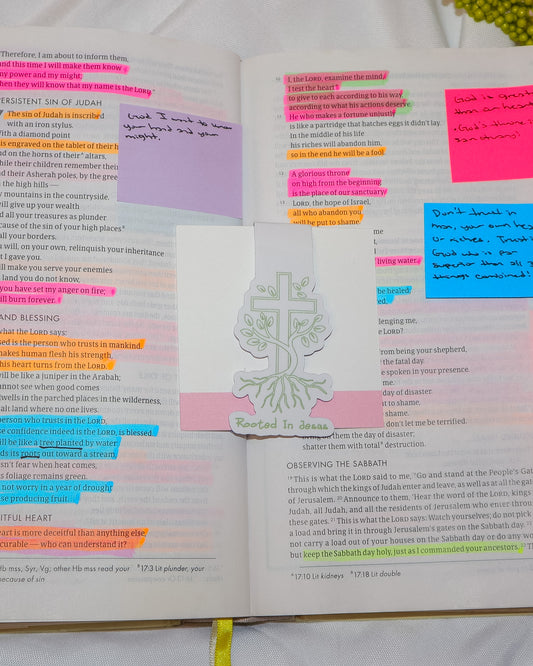 Therefore, I am about to inform them,
and this time I will make them know
my power and my might;
then they will know that my name is the LORD."
PERSISTENT SIN OF JUDAH
The sin of Judah is inscribed
with an iron stylus.
With a diamond point
is engraved on the tablet of their h
and on the horns of their altars,
while their children remember their
and their Asherah poles, by the gree
the high hills —
my mountains in the countryside.
will give up your wealth
and all your treasures as plunder
because of the sin of your high places
all your borders.
You will, on your own, relinquish your inheritance
that I gave you.
will make you serve your enemies
land you do not know,
you have set my anger on fire;
will burn forever.
AND BLESSING
what the LORD says:
Cursed is the person who trusts in mankind.
makes human flesh his strength,
his heart turns from the LORD.
will be like a juniper in the Arabah;
cannot see when good comes
dwells in the parched places in the wilderness,
salt land where no one lives.
person who trusts in the LORD,
whose confidence indeed is the LORD, is blessed.
will be like a tree planted by water:
sends its roots out toward a stream,
doesn't fear when heat comes,
its foliage remains green.
not worry in a year of drought
cease producing fruit.
DECEITFUL HEART
heart is more deceitful than anything else,
incurable — who can understand it?
Hb mss, Syr, Vg; other Hb mss read your
17:3 Lit plunder, your
because of sin
God I want to know
your hand and your
might.
I, the LORD, examine the mind,
I test the heart
to give to each according to his way,
according to what his actions deserve.
He who makes a fortune unjustly
is like a partridge that hatches eggs it didn't lay.
In the middle of his life
his riches will abandon him,
so in the end he will be a fool.
A glorious throne
on high from the beginning
is the place of our sanctuary.
LORD, the hope of Israel,
all who abandon you
will be put to shame.
living water.
be healed;
God is great
than our heart
Don't trust in
man, your own hea
or riches. Trust
God who is far
superior than all
things combined!
Rooted In Jesus
from being your shepherd,
the fatal day.
spoken in your presence.
day of disaster.
to shame,
shame.
don't let me be terrified.
on them the day of disaster;
shatter them with total destruction.
OBSERVING THE SABBATH
19 This is what the LORD said to me, "Go and stand at the People's Gate
through which the kings of Judah enter and leave, as well as at all the gat
of Jerusalem. 20 Announce to them, 'Hear the word of the LORD, kings
Judah, all Judah, and all the residents of Jerusalem who enter throu
these gates. 21 This is what the LORD says: Watch yourselves; do not pick
a load and bring it in through Jerusalem's gates on the Sabbath day. 22
not carry a load out of your houses on the Sabbath day or do any wo
but keep the Sabbath day holy, just as I commanded your ancestors.
17:10 Lit kidneys
17:18 Lit double